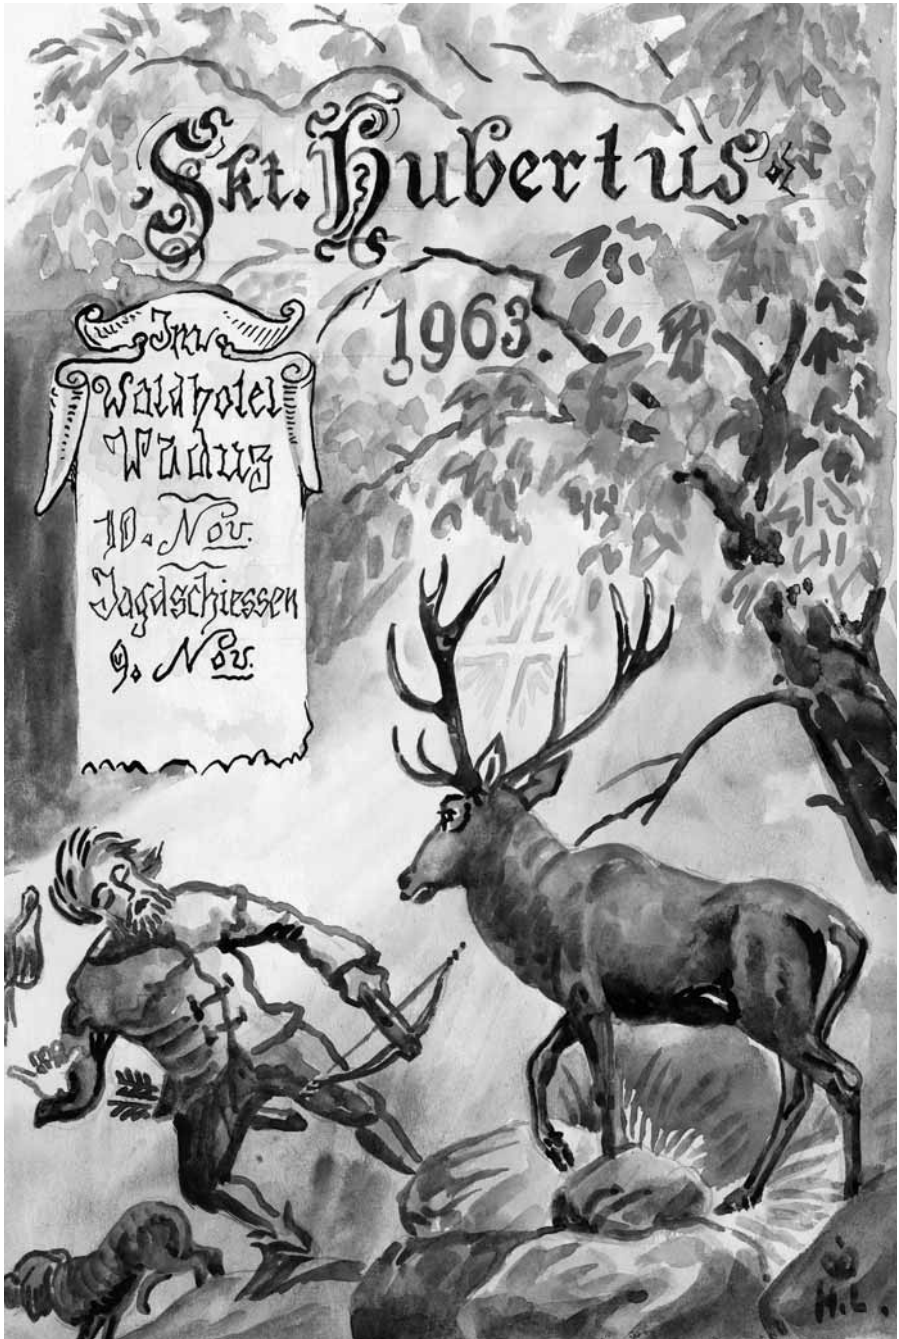 Skt. Hubertus
1963.
Im
Waldhotel
Vaduz
10. Nov.
Jagdschiessen
9. Nov.
H.L.